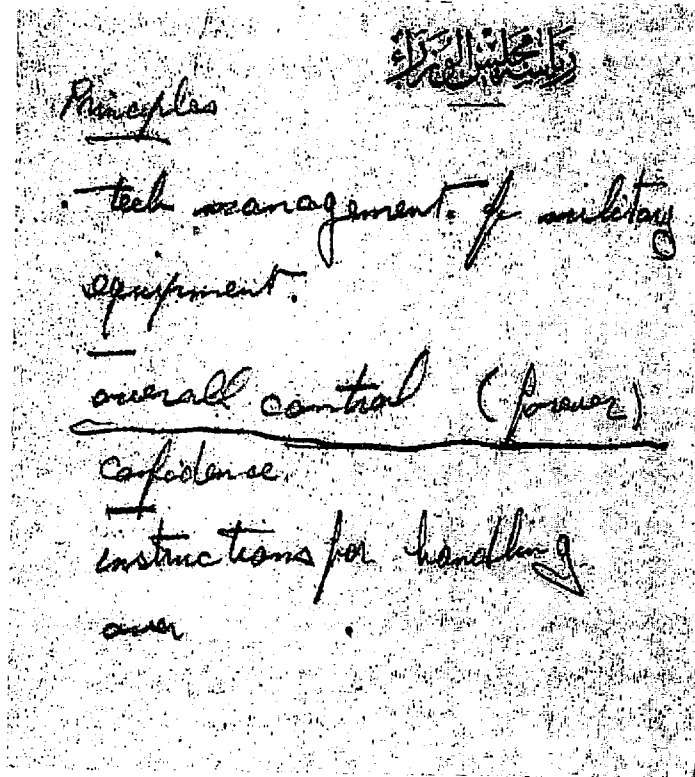 رياسة مجلس الوزراء
Principles
. tech management of military
equipment.
overall control (forever)
confidence
instructions for handling
over .